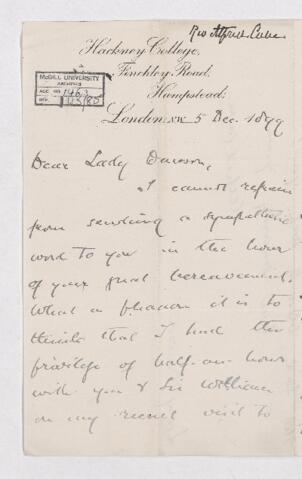 Rev Alfred Cave
Hackney College,
Finchley Road,
Hampstead,
London, NW 5 Dec. 1899
McGILL UNIVERSITY
ARCHIVES
ACC. NO. 1463
REF.
Dear Lady Dawson,
I cannot refrain
from sending a sympathetic
word to you in the hour
of your great bereavement.
What a pleasure it is to
think that I had the
privilege of half-an-hour
with you & Sir William
on my recent visit to